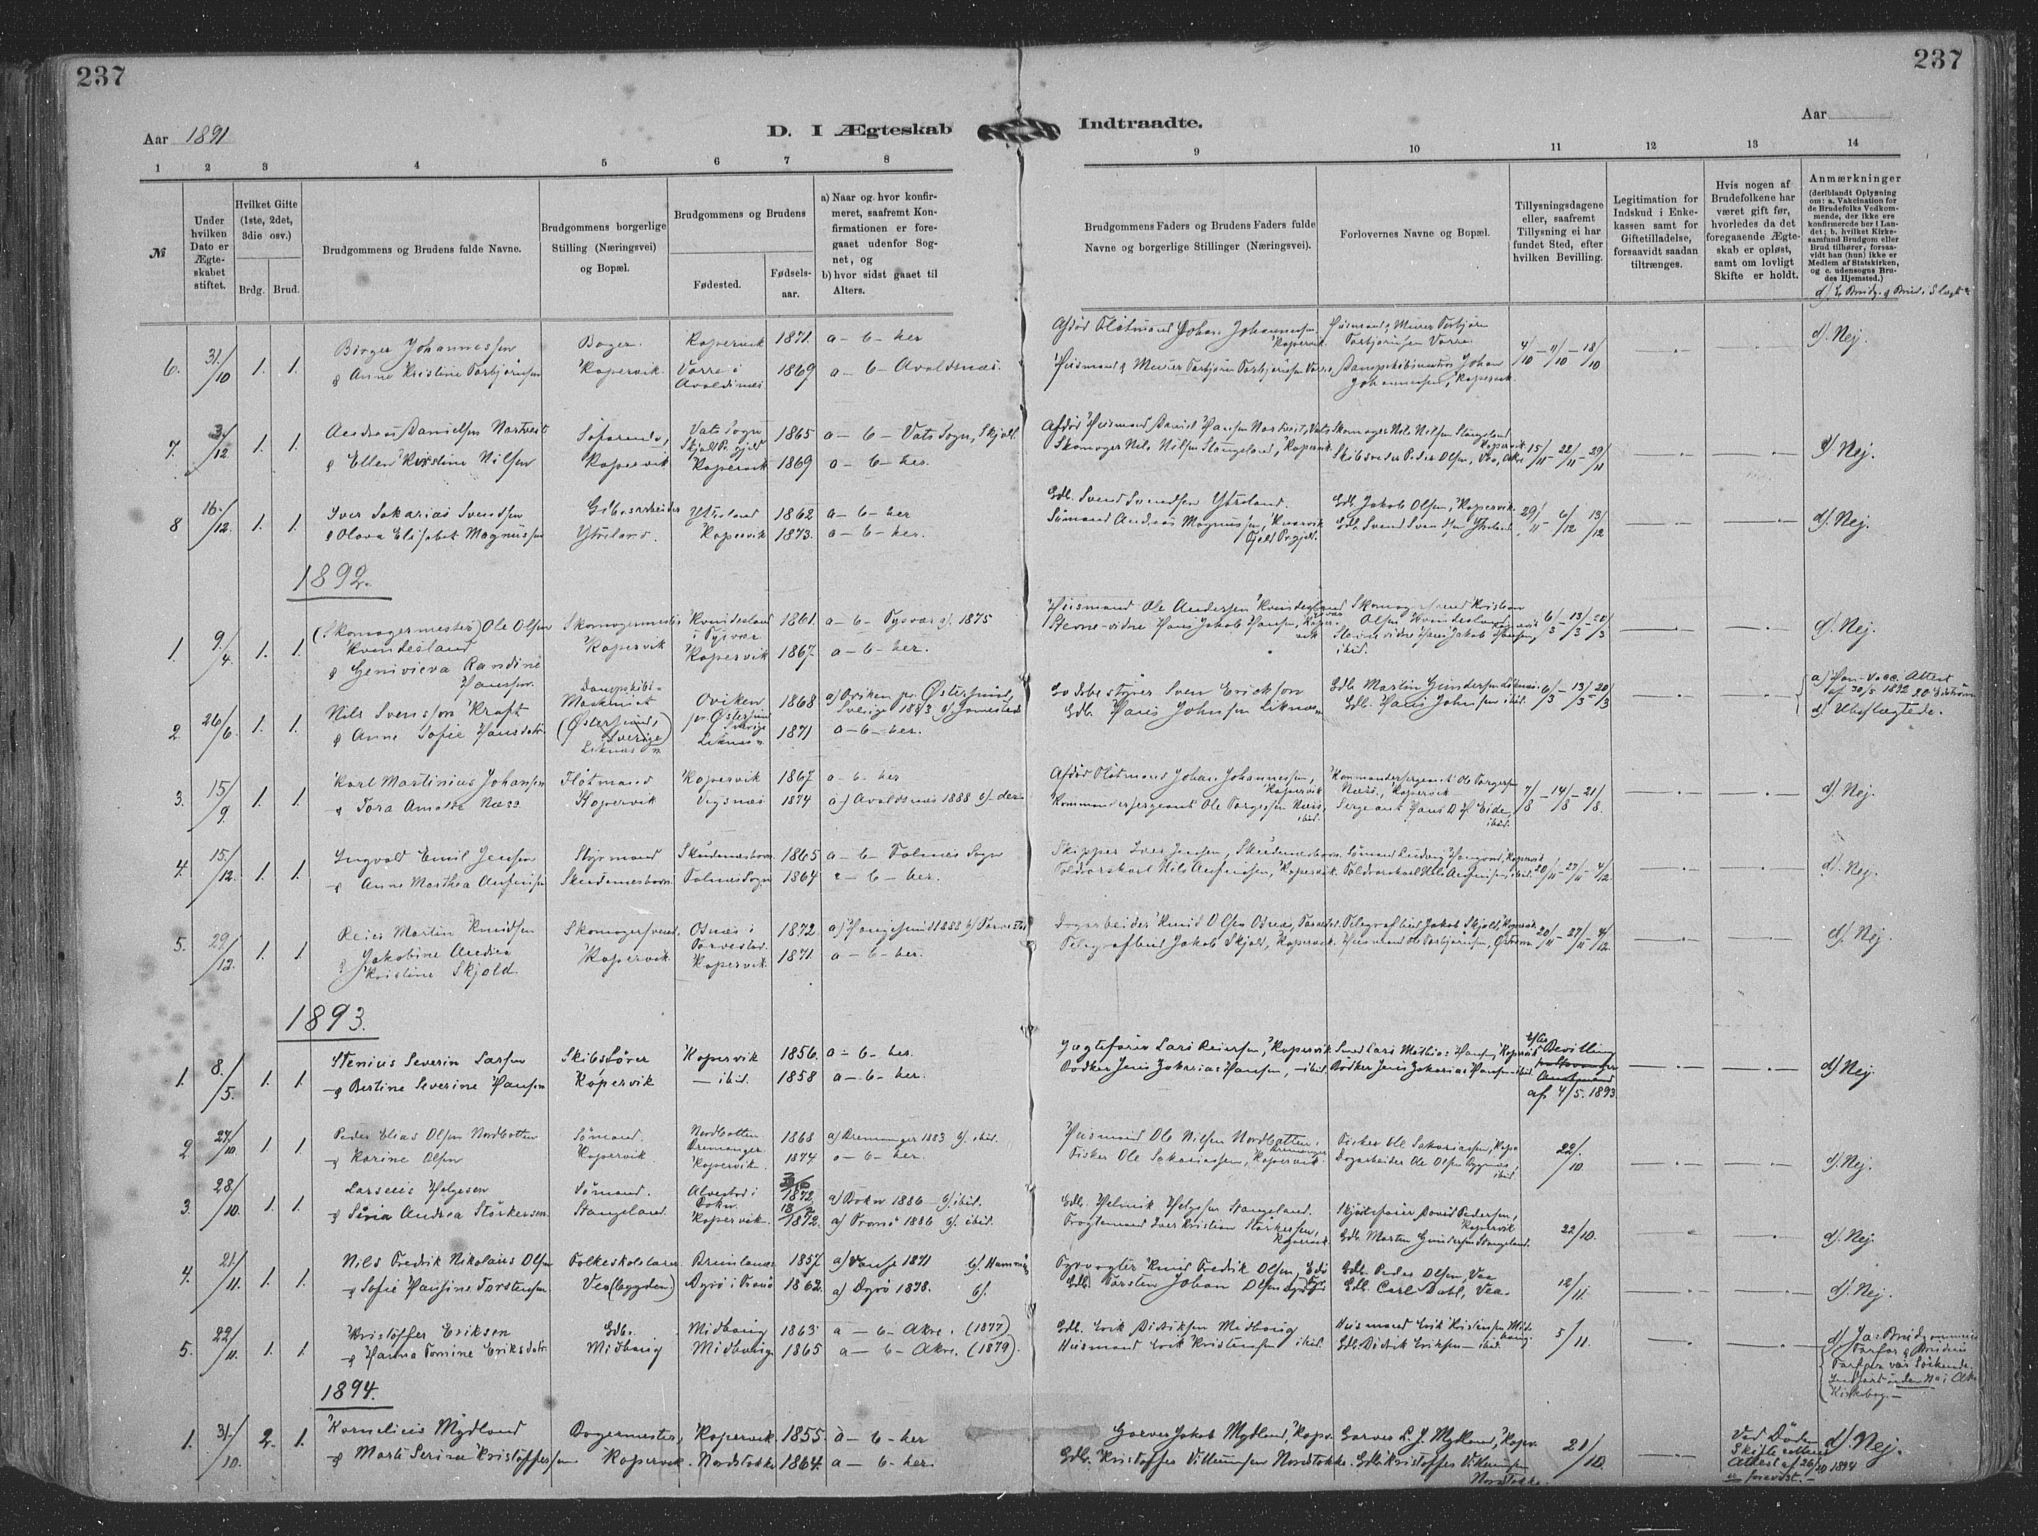 237
237
Aar 1891
D. I Ægteskab Indtraadte.
Aar
1 2 3 4 5 6 7 8 9 10 11 12 13 14
№
Under hvilken Dato er Ægteskabet stiftet.
Hvilket Gifte (1ste, 2det, 3die osv.)
Brdg. Brud.
Brudgommens og Brudens fulde Navne.
Brudgommens borgerlige Stilling (Næringsvei) og Bopæl.
Brudgommens og Brudens
Fødested. Fødselsaar.
a) Naar og hvor konfirmeret, saafremt Konfirmationen er foregaaet udenfor Sognet, og
b) hvor sidst gaaet til Alters.
Brudgommens Faders og Brudens Faders fulde Navne og borgerlige Stillinger (Næringsvei).
Forlovernes Navne og Bopæl.
Tillysningsdagene eller, saafremt Tillysning ei har fundet Sted, efter hvilken Bevilling.
Legitimation for Indskud i Enkekassen samt for Giftetilladelse, forsaavidt saadan tiltrænges.
Hvis nogen af Brudefolkene har været gift før, hvorledes da det foregaaende Ægteskab er opløst, samt om lovligt Skifte er holdt.
Anmærkninger
(deriblandt Oplysning om: a. Vakcination for de Brudefolks Vedkommende, der ikke ere konfirmerede her i Landet; b. hvilket Kirkesamfund Brudgom eller Brud tilhører, forsaavidt han (hun) ikke er Medlem af Statskirken, og c. udensogns Brudes Hjemsted.)
6. 31/10 1. 1. Birger Johannessen Bager. Kopervik 1871. a - b - her Afdød Flotmand Johan Johannessen Kopervik Husmand & Murer Torbjørn Torbjørnsen Vorre 4/10 - 11/10 - 18/10 d). Nej.
& Anne Kristine Torbjørnsen Kopervik Vorre i Avaldsnæs 1869 a - b - Avaldsnæs. Husmand & Murer Torbjørn Torbjørnsen Vorre Johan Johannessen, Kopervik
7. 3/12 1. 1. Andreas Danielsen Nortveit Søfarende, Vats Sogn Skjold P. Gjeld 1865 a - b - Vats Sogn, Skjold Afdød Husmand Hansen Nortveit, Vats Skomager Nils Nilsen Stangeland Kopervik 15/11 - 22/11 - 29/11 d) Nej.
& Ellen Kristine Nilsen Kopervik Kopervik 1869 a - b - her. Skomager Nils Nilsen Stangeland, Kopervik Skibsreder Peder Olsen, Vea, Akre
8 16/12. 1. 1. Iver Sakarias Svendsen Ytreland 1862 a - b - her Gdb. Svend Svendsen Ytreland. Gdb. Jakob Olsen, Kopervik. 29/11 - 6/12 13/12 d). Nej.
& Olava Elisabet Magnussen Ytreland. Kopervik 1873. a - b - her. Sømand Andreas Magnussen, Gdb. Svend Svendsen Ytreland
1892.
1. 9/4. 1. 1. (Skomagermester) Ole Olsen Kvindesland Skomagermester Kopervik Kvindesland i Tysvær 1861. a - b - Tysvær 1875 Husmand Ole Andersen Kvindesland Skomagersvend Kristian Olsen Kvindesland 6/3 - 13/3 - 20/3 d). Nej.
& Genivieva Randine Hansen. Kopervik 1867. a - b - her. Stevnevidne Hans Jakob Hansen, Kopervik Stevnevidne Hans Jakob Hansen, ibid.
2. 26/6. 1. 1. Nils Svensson Kraft Dampskibs-Maskinist (Østersund, Sverige) Oviken pr Østersund Sverige 1868 a) Oviken pr. Østersund, Sverige 1883 Godsbestyrer Sven Erickson Gdb. Martin Gundersen 6/3 - 13/3 - 20/3 a) Han vacc. Attest af 30/5 1892
& Anne Sofie Hansdatter Liknes 1871 a - b - her. Gdb. Hans Johnsen Liknæs Gdb. Hans Johnsen ibid. d) Ubeslægtede.
3. 15/9. 1. 1. Karl Martinius Johansen Flotmand Kopervik 1867 a - b - her Afdød Flotmand Johan Johannessen, Kopervik Kommandersergeant Ole Torgersen Næss, Kopervik 7/8 - 14/8 - 21/8. d). Nej.
& Tora Amalia Næss. Kopervik Vigsnæs 1874 a) Avaldsnæs 1888 b) der Kommandersergeant Ole Torgersen Næss, ibid. Sergeant Hans D. H. Eide, ibid.
4. 15/12. 1. 1. Ingvald Emil Jensen Styrmand Skudesneshavn 1865 a - b - Falnæs Sogn Skipper Iver Jensen, Skudesneshavn Sømand Ludvig Kopervik 20/11 - 27/11 - 4/12. d). Nej.
& Anne Marthea Ausensen Skudesneshavn Falnæs Sogn 1864 a - b - her. Toldvarskarl Nils Ausensen, Kopervik. Toldvarskarl Nils Ausensen, ibid.
5. 29/12. 1. 1. Reier Martin Knudsen Skomagersvend. Osnæs i Torvestad. 1872 a) Haugesund 1888 b) Torvestad Dagarbeider Knud Olsen Osnæs, Torvestad Telegrafbud Jakob Skjold, Kopervik 20/11 - 27/11 - 4/12. d). Nej.
& Jakobine Andrea Kristine Skjold. Kopervik. Kopervik. 1871. a - b - her. Telegrafbud Jakob Skjold, Kopervik. Husmand Ole Torbjørnsen,
1893.
1. 8/5. 1. 1. Stenius Severin Larsen Skibsfører Kopervik 1856. a - b - her. Jægtefører Lars Reiersen, Kopervik Smed Lars Mathias Hansen, Kopervik Efter Bevilling af 4/5. 1893 d) Nej.
& Bertine Severine Hansen Kopervik - ibid. 1858 a - b - her. Bødker Jens Zakarias Hansen, - ibid. Bødker Jens Zakarias Hansen ibid.
2 27/10. 1. 1. Peder Elias Olsen Nordbotten Sømand. Nordbotten Bremanger 1868 a) Bremanger 1883 b). ibid. Husmand Ole Nilsen Nordbotten. Bremanger Fisker Ole Sakariassen, 22/10 d). Nej.
& Karine Olsen Kopervik Kopervik. 1874 a - b - her. Fisker Ole Sakariassen, Kopervik Dagarbeider Ole Olsen Bygnæs, ibid.
3. 28/10. 1. 1. Larseus Helgesen Sømand. Alvestad i Bokn. 1872. a) Bokn 1886 - b). ibid. Gdb. Helmik Helgesen Stangeland. Skjødefører David Pedersen, Kopervik 22/10. d). Nej.
& Siria Andrea Størkersen Stangeland. Kopervik. 18/2 1872. a) Tromsø 1886 b). ibid. Fragtemand Iver Kristian Størkersen, Kopervik Gdb. Morten Gundersen Stangeland.
4. 21/11. 1. 1. Nils Fredrik Nikolaus Olsen Folkeskolelærer 1857. a) Vanse 1871 b) Fyrvogter Knud Fredrik Olsen, Gdb. Peder Olsen, Vea 12/11. d). Nej.
& Sofie Hansine Torstensen Vea (bygden) Dyrø i Tromsø 1862. a) Dyrø 1878. b). Gdb. Torsten Johan Olsen Dyrø Gdb. Carl Dahl, Vea.
5. 22/11. 1. 1. Kristoffer Eriksen Gdb. Midbøvig 1863 a - b - Akre. (1877) Gdb. Erik Didriksen Midbøvig Husmand Erik Kristensen 5/11. d) Ja: Brudgommens Farfar & Brudens Farfar var Søskende.
& Hanna Tomine Eriksdatter Midbøvig Midbøvig 1865 a - b - Akre. (1879). Husmand Erik Kristensen ibid. Gdb. Didrik Eriksen - ibid. Indført under No i Akre Kirkebog. -
1894.
1. 31/10. 2. 1. Kornelius Mydland Bagermester, Kopervik 1855 a - b - her Garver Jakob Mydland, Kopv. Garver L. J. Mydland, Kopv. 21/10. Ved Døden Skifte Attest af 26/10 1894 er forevist. - d). Nej.
& Marta Serina Kristoffersen Kopervik. Nordstokke 1864. a - b - her. Gdb. Kristoffer Villumsen Nordstokke. Gdb. Kristoffer Villumsen Nordstokke.